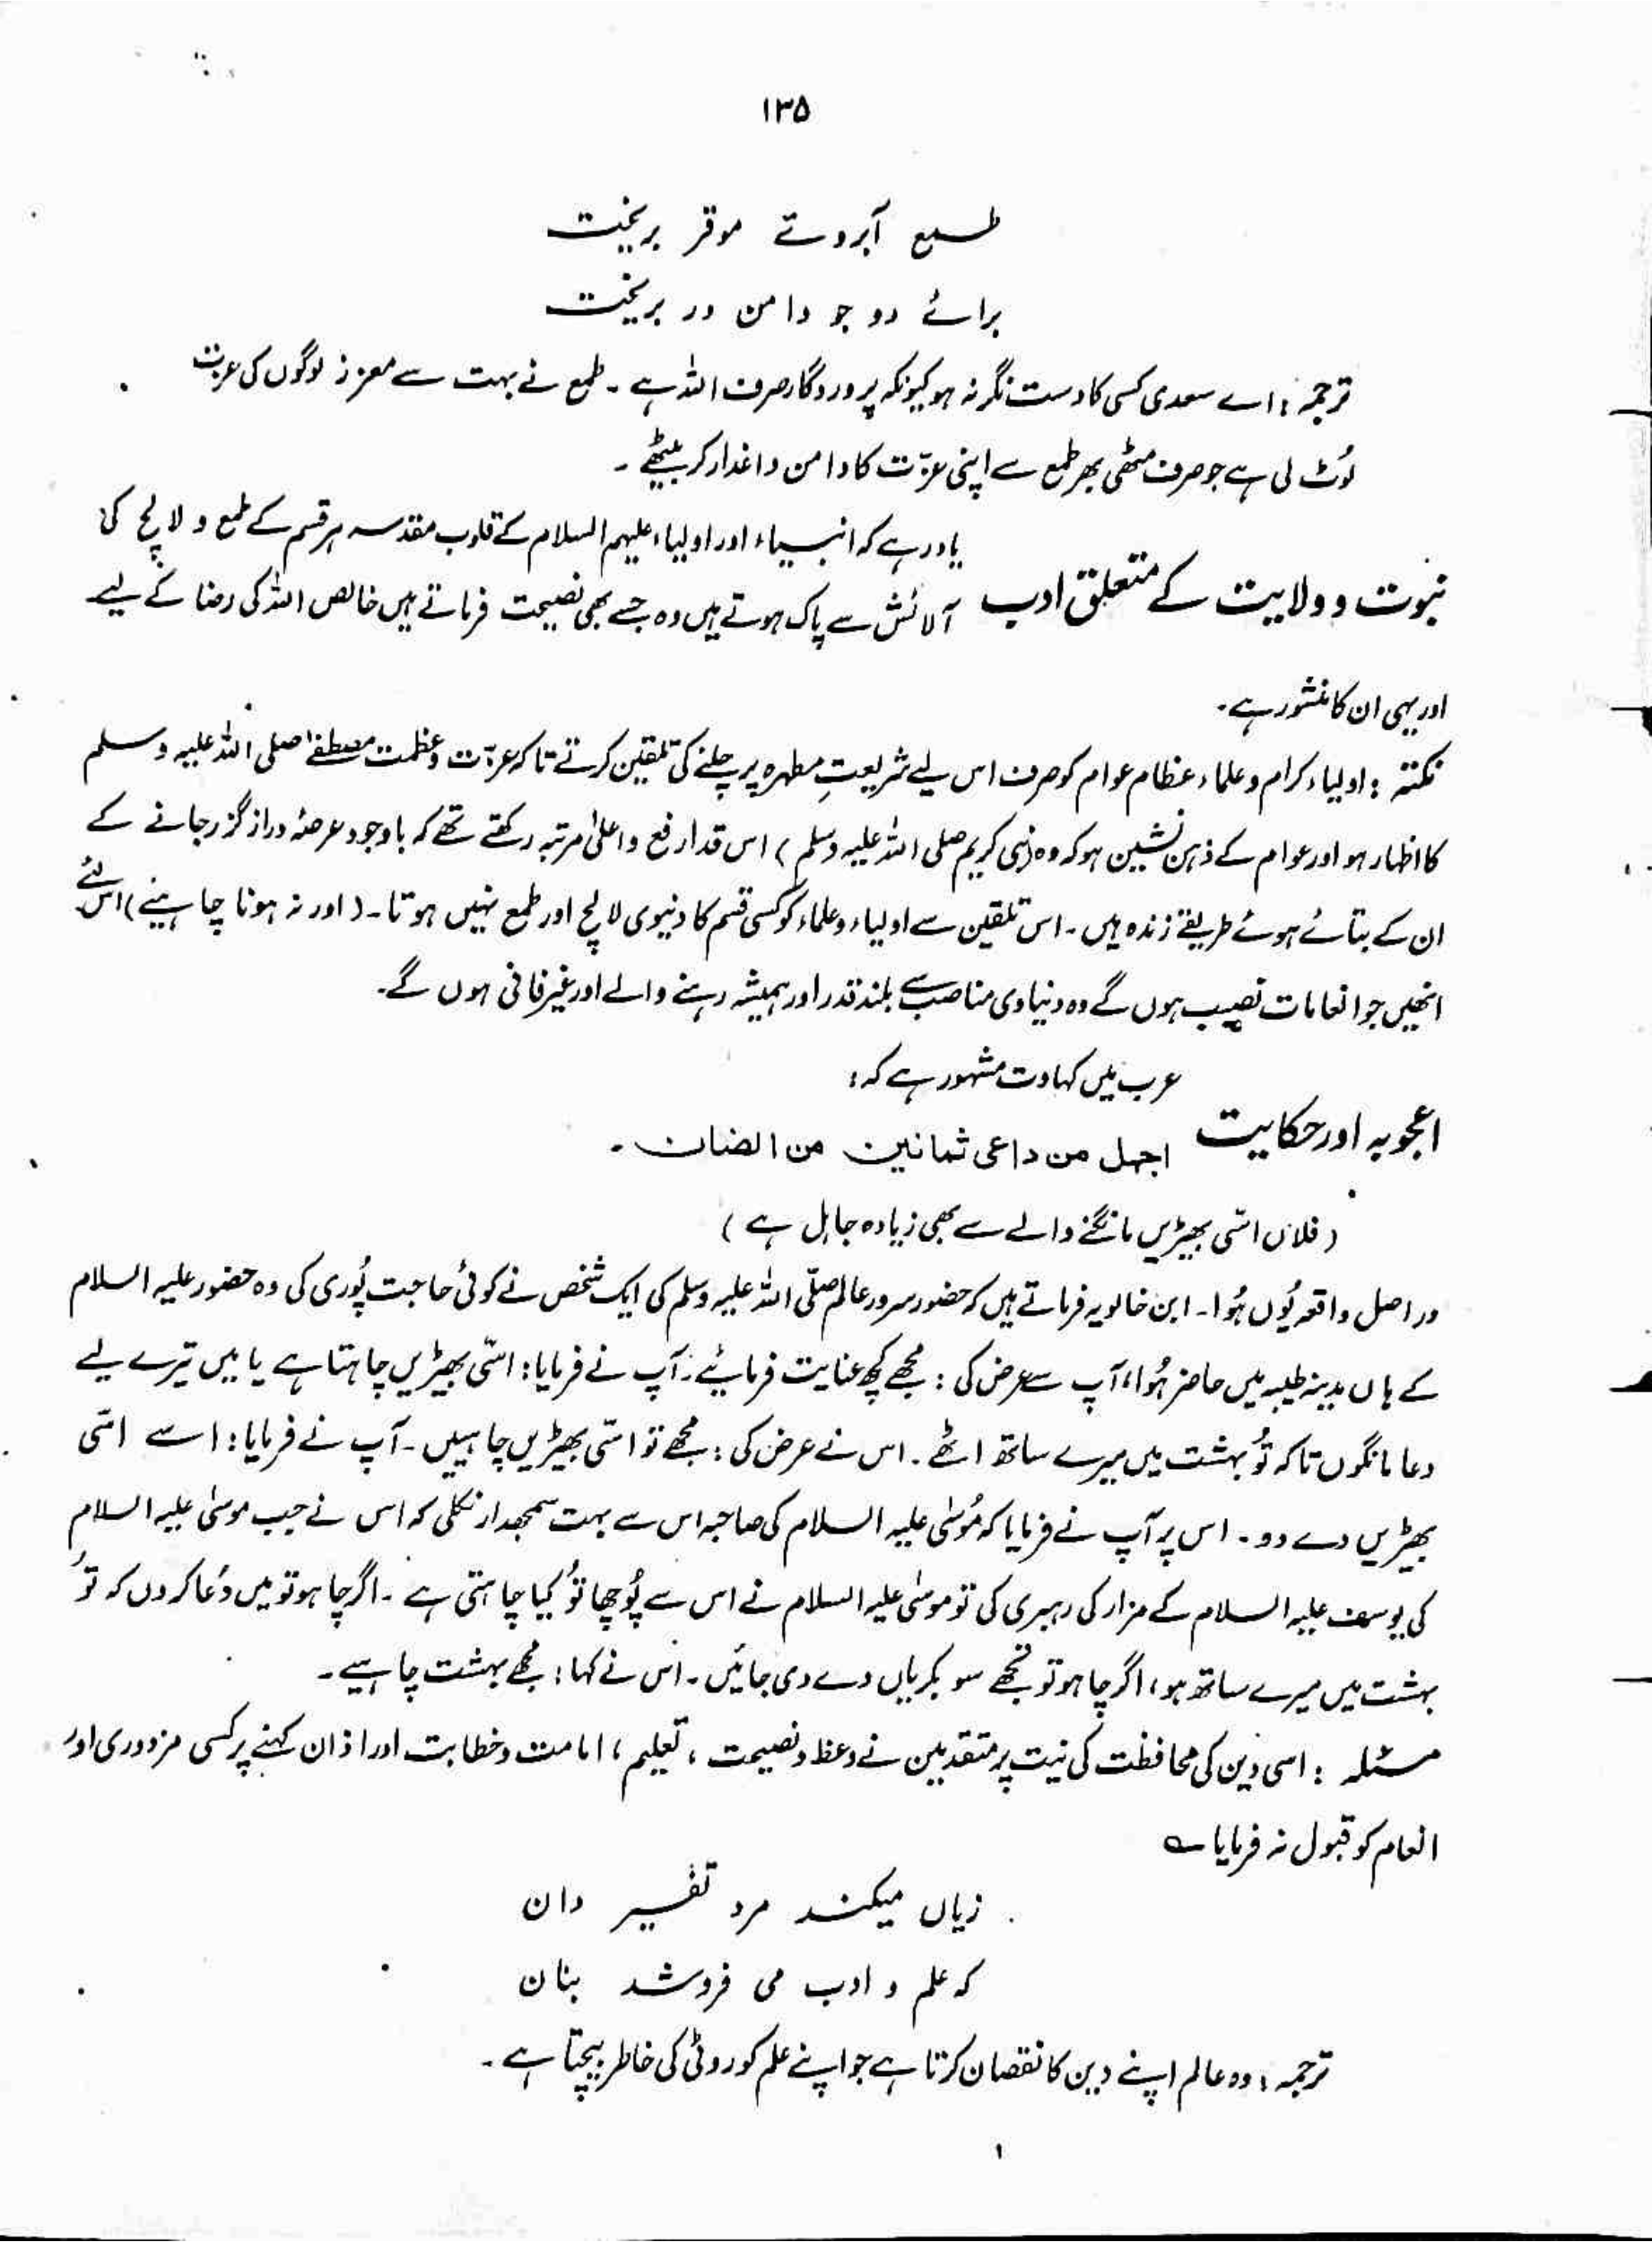 ۱۳۵
طمع آبروئے موقر بریخت
برائے دو جو دامن در بریخت
ترجمہ: اے سعدی کسی کا دست نگر نہ ہو کیونکہ پروردگار صرف اللہ ہے ۔ طمع نے بہت سے معزز لوگوں کی عزت
لُوٹ لی ہے جو صرف مٹھی بھر طمع سے اپنی عزّت کا دامن داغدار کر بیٹھے ۔
یاد رہے کہ انبیاء اور اولیاء علیہم السلام کے قلوب مقدسہ ہر قسم کے طمع و لالچ کی
نبوت و ولایت کے متعلق ادب آلائش سے پاک ہوتے ہیں وہ جسے بھی نصیحت فرماتے ہیں خالص اللہ کی رضا کے لیے
اور یہی ان کا منشور ہے۔
نکتہ : اولیاء کرام و علماء عظام عوام کو صرف اس لیے شریعتِ مطہرہ پر چلنے کی تلقین کرتے تاکہ عزّت و عظمت مصطفےٰ صلی اللہ علیہ وسلم
کا اظہار ہو اور عوام کے ذہن نشین ہو کہ وہ (نبی کریم صلی اللہ علیہ وسلم ) اس قدر ارفع و اعلیٰ مرتبہ رکھتے تھے کہ باوجود عرصۂ دراز گزر جانے کے
ان کے بتائے ہوئے طریقے زندہ ہیں ۔ اس تلقین سے اولیاء و علماء کو کسی قسم کا دنیوی لالچ اور طمع نہیں ہوتا ۔ ( اور نہ ہونا چاہیئے ) اس لئے
انھیں جو انعامات نصیب ہوں گے وہ دنیاوی مناصب سے بلند قدر اور ہمیشہ رہنے والے اور غیر فانی ہوں گے۔
عرب میں کہاوت مشہور ہے کہ :
اعجوبہ اور حکایت اجهل من داعی ثمانین من الضان ۔
( فلاں اسّی بھیڑیں مانگنے والے سے بھی زیادہ جاہل ہے )
در اصل واقعہ یُوں ہُوا ۔ ابن خالویہ فرماتے ہیں کہ حضور سرور عالم صلّی اللہ علیہ وسلم کی ایک شخص نے کوئی حاجت پُوری کی وہ حضور علیہ السلام
کے ہاں مدینہ طیبہ میں حاضر ہُوا، آپ سے عرض کی : مجھے کچھ عنایت فرمائیے ۔ آپ نے فرمایا : اسّی بھیڑیں چاہتا ہے یا میں تیرے لیے
دعا مانگوں تاکہ تُو بہشت میں میرے ساتھ اٹھے ۔ اس نے عرض کی : مجھے تو اسّی بھیڑیں چاہییں ۔ آپ نے فرمایا : اسے اسّی
بھیڑیں دے دو ۔ اس پر آپ نے فرمایا کہ مُوسٰی علیہ السلام کی صاحبہ اس سے بہت سمجھدار نکلی کہ اس نے جب موسٰی علیہ السلام
کی یوسف علیہ السلام کے مزار کی رہبری کی تو موسٰی علیہ السلام نے اس سے پُوچھا تُو کیا چاہتی ہے ۔ اگر چاہو تو میں دُعا کر دوں کہ تُو
بہشت میں میرے ساتھ ہو ، اگر چاہو تو تجھے سو بکریاں دے دی جائیں ۔ اس نے کہا : مجھے بہشت چاہیے ۔
مسئلہ : اسی دین کی محافظت کی نیت پر متقدمین نے وعظ و نصیحت ، تعلیم ، امامت و خطابت اور اذان کہنے پر کسی مزدوری اور
انعام کو قبول نہ فرمایا ؎
زیاں میکند مرد تفسیر دان
کہ علم و ادب می فروشد بنان
ترجمہ : وہ عالم اپنے دین کا نقصان کرتا ہے جو اپنے علم کو روٹی کی خاطر بیچتا ہے ۔
۱